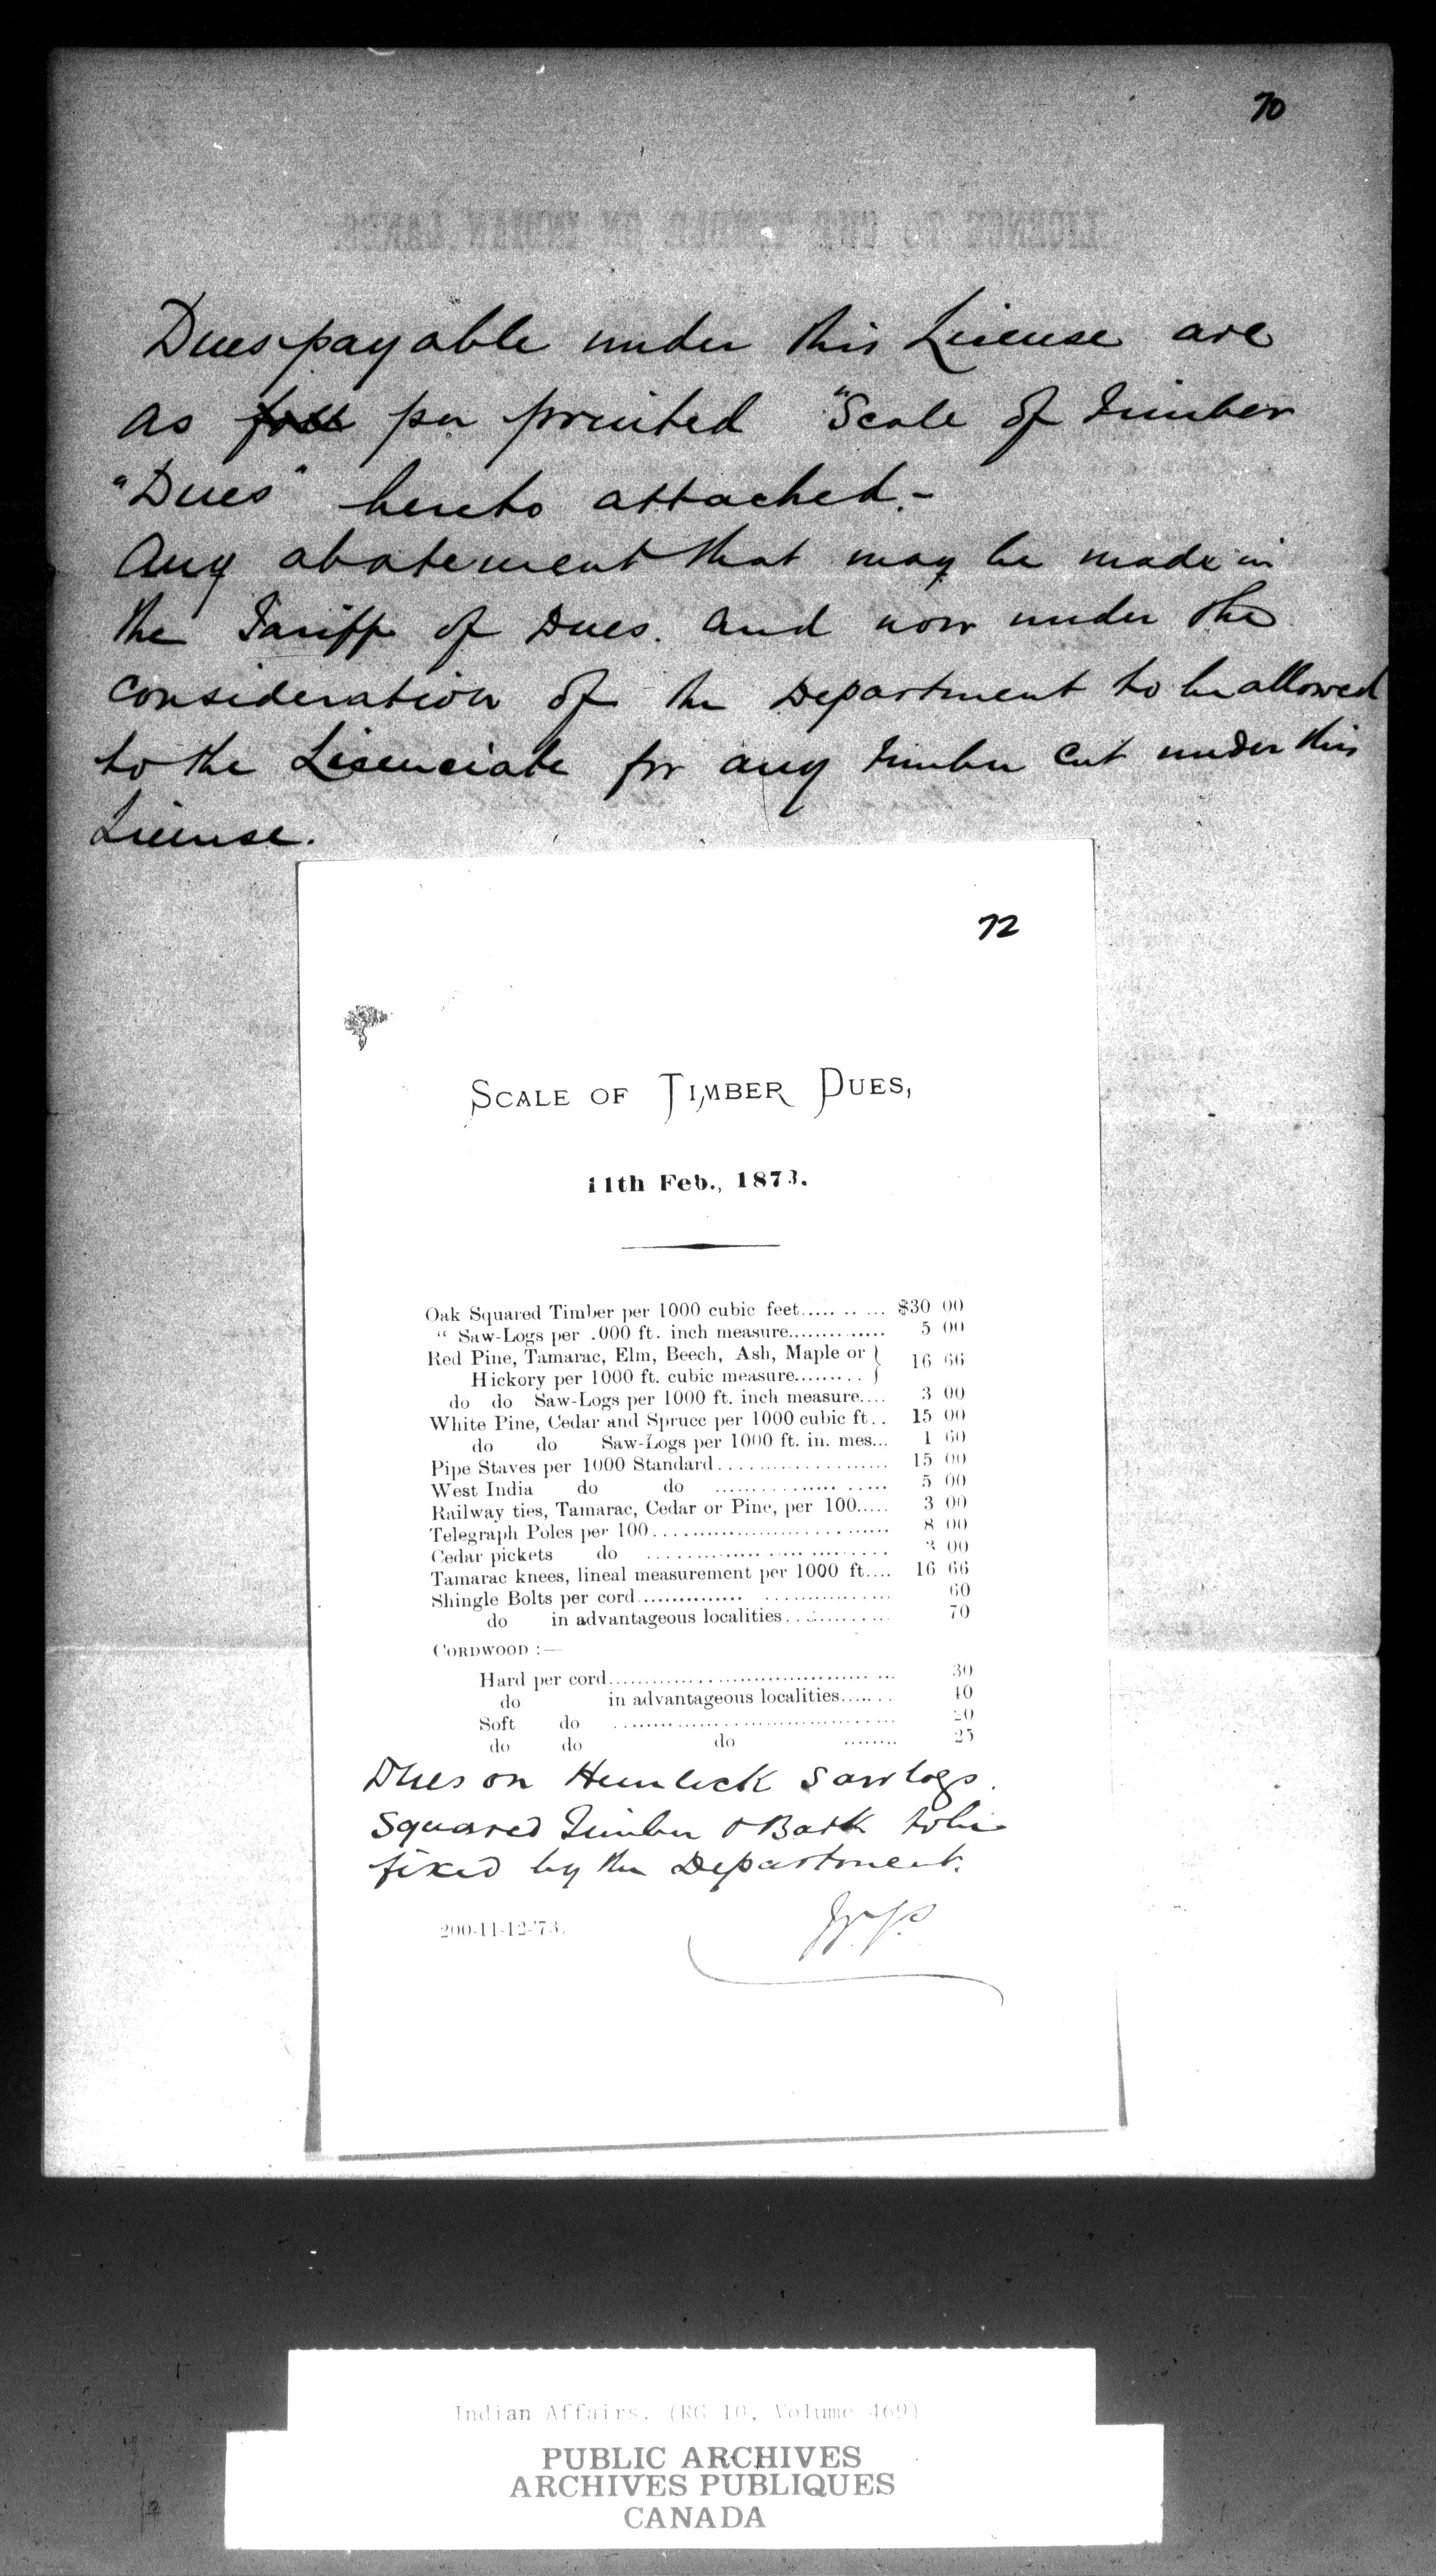 70
Dues payable under this License are
as per printed "Scale of Timber
"Dues" hereto attached.-
Any abatement that may be made in
the Tariff of Dues. and now under the
consideration of the Department to be allowed
to the Lisenciate for any Timber cut under this
License.
72
SCALE OF TIMBER DUES,
11th Feb., 1873.
Oak Squared Timber per 1000 cubic feet......... $30 00
" Saw-Logs per .000 ft. inch measure.............. 5 00
Red Pine, Tamarac, Elm, Beech, Ash, Maple or }
Hickory per 1000 ft. cubic measure......... } 16 66
do do Saw-Logs per 1000 ft. inch measure.... 3 00
White Pine, Cedar and Spruce per 1000 cubic ft.. 15 00
do do Saw-Logs per 1000 ft. in. mes... 1 60
Pipe Staves per 1000 Standard.................... 15 00
West India do do .................... 5 00
Railway ties, Tamarac, Cedar or Pine, per 100..... 3 00
Telegraph Poles per 100............................ 8 00
Cedar pickets do ............................ 3 00
Tamarac knees, lineal measurement per 1000 ft.... 16 66
Shingle Bolts per cord............... ............... 60
do in advantageous localities............. 70
CORDWOOD :—
Hard per cord........................................ 30
do in advantageous localities....... 40
Soft do ........................................ 20
do do do ........ 25
Dues on Hemlock Sawlogs.
Squared Timber & Bark to be
fixed by the Department.
200-11-12-'73.
Indian Affairs. (RG 10, Volume 469)
PUBLIC ARCHIVES
ARCHIVES PUBLIQUES
CANADA